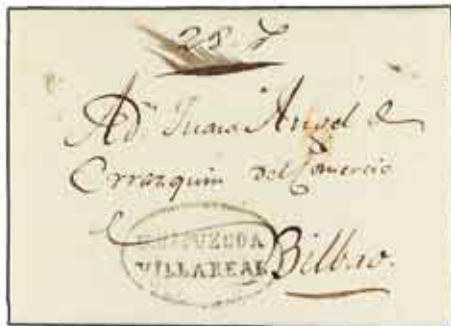 A Dn Juan Angel de
Orrazquin del Comercio
GUIPUZCOA
VILLAREAL
Bilbao.